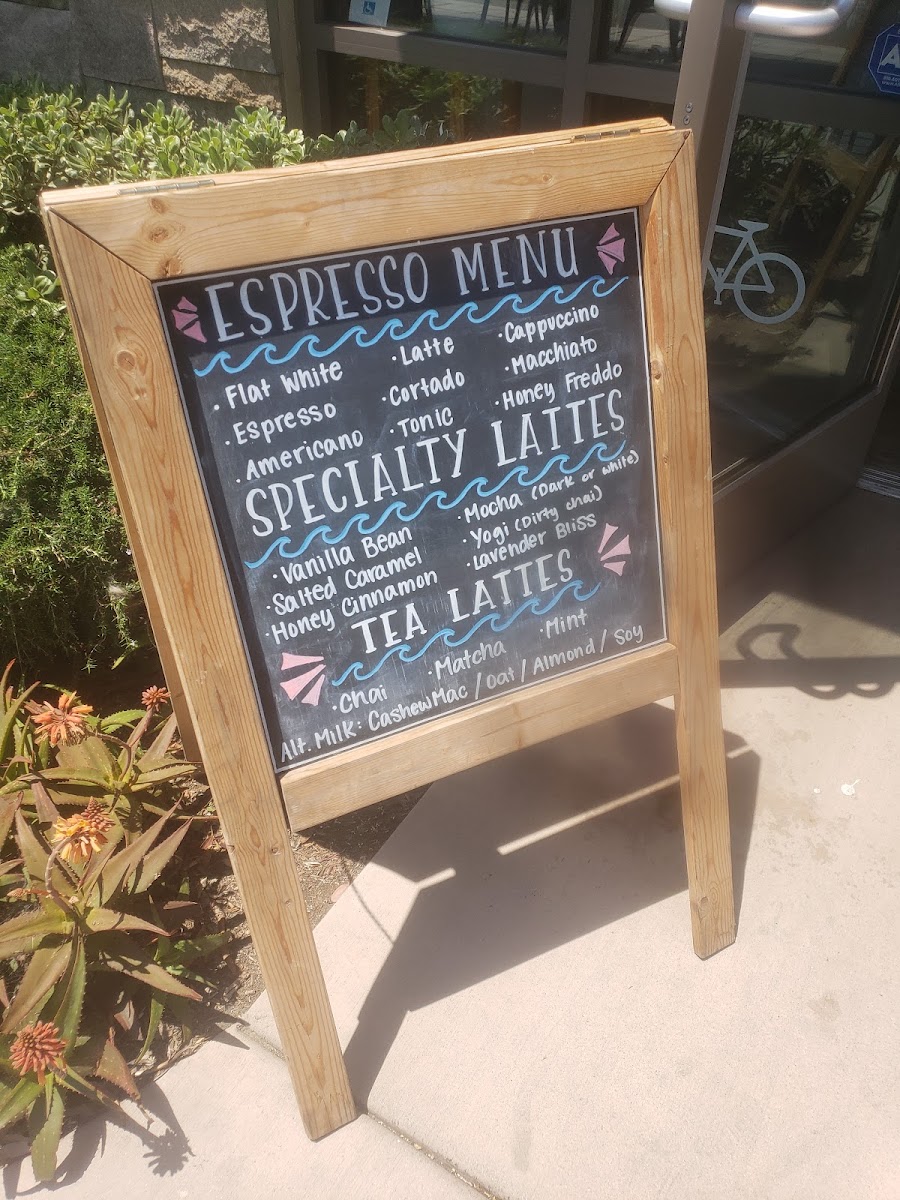 ESPRESSO MENU
· Flat White · Latte · Cappuccino
· Espresso · Cortado · Macchiato
· Americano · Tonic · Honey Freddo
SPECIALTY LATTES
· Vanilla Bean · Mocha (Dark or white)
· Salted Caramel · Yogi (Dirty chai)
· Honey Cinnamon · Lavender Bliss
TEA LATTES
· Chai · Matcha · Mint
Alt. Milk: CashewMac / Oat / Almond / Soy